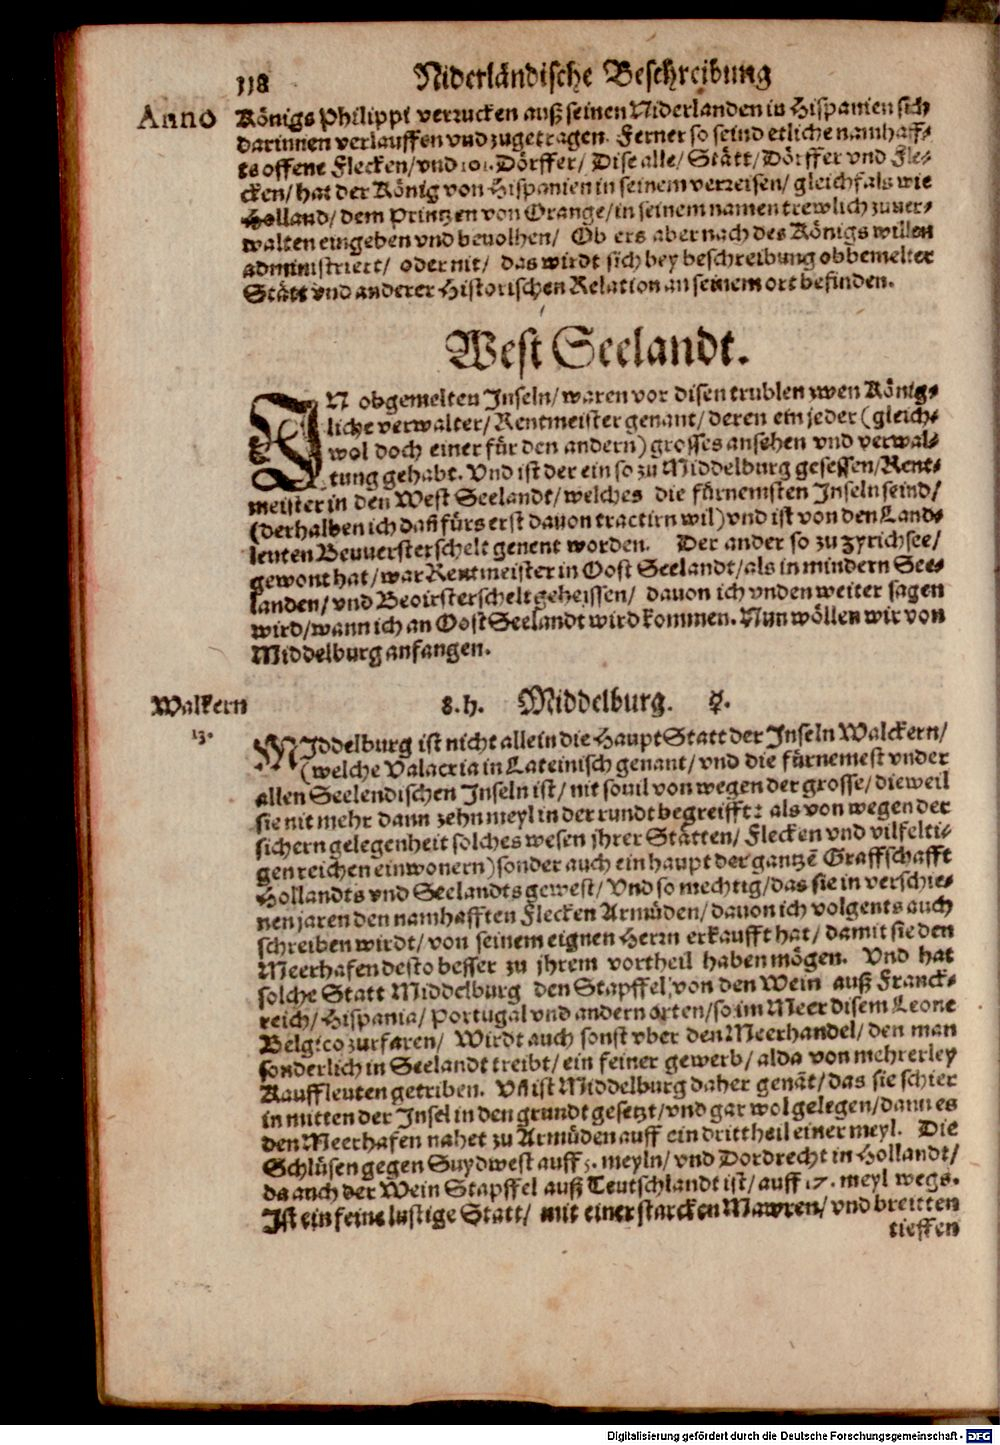 118 Niderländische Beschreibung
Anno Königs Philippi verrucken auß seinen Niderlanden in Hispanien sich
darinnen verlauffen vnd zugetragen. Ferner so seind etliche namhaff-
te offene Flecken/ vnd 101. Dörffer/ Dise alle/ Stätt/ Dörffer vnd Fle-
cken/ hat der König von Hispanien in seinem verreisen/ gleichfals wie
Holland/ dem Printzen von Orange/ in seinem namen trewlich zuuer-
walten eingeben vnd beuolhen/ Ob ers aber nach des Königs willen
administriert/ oder nit/ das wirdt sich bey beschreibung obbemelter
Stätt vnd anderer Historischen Relation an seinem ort befinden.
West Seelandt.
IN obgemelten Inseln/ waren vor disen trublen zwen König-
liche verwalter/ Rentmeister genant/ deren ein jeder (gleich-
wol doch einer für den andern) grosses ansehen vnd verwal-
tung gehabt. Vnd ist der ein so zu Middelburg gesessen/ Rent-
meister in den West Seelandt/ welches die fürnemsten Inseln seind/
(derhalben ich dañ fürs erst dauon tractirn wil) vnd ist von den Land-
leuten Beuuersterschelt genent worden. Der ander so zu Zyrichsee/
gewont hat/ war Rentmeister in Oost Seelandt/ als in mindern See-
landen/ vnd Beoirsterschelt geheissen/ dauon ich vnden weiter sagen
wird/ wann ich an Oost Seelandt wird kommen. Nun wöllen wir von
Middelburg anfangen.
Walkern 8. h. Middelburg. ☿.
13.
MIddelburg ist nicht allein die Haupt Statt der Inseln Walckern/
(welche Valacria in Lateinisch genant/ vnd die fürnemest vnder
allen Seelendischen Inseln ist/ nit souil von wegen der grosse/ dieweil
sie nit mehr dann zehn meyl in der rundt begreifft: als von wegen der
sichern gelegenheit solches wesen jhrer Stätten/ Flecken vnd vilfelti-
gen reichen einwonern) sonder auch ein haupt der gantzẽ Graffschafft
Hollandts vnd Seelandts gewest/ Vnd so mechtig/ das sie in verschie-
nen jaren den namhafften Flecken Armüden/ dauon ich volgents auch
schreiben wirdt/ von seinem eignen Herrn erkaufft hat/ damit sie den
Meerhafen desto besser zu jhrem vortheil haben mögen. Vnd hat
solche Statt Middelburg den Stapffel von den Wein auß Franck-
reich/ Hispania/ Portugal vnd andern orten/ so im Meer disem Leone
Belgico zurfaren/ Wirdt auch sonst vber den Meerhandel/ den man
sonderlich in Seelandt treibt/ ein feiner gewerb/ alda von mehrerley
Kauffleuten getriben. Vñ ist Middelburg daher genãt/ das sie schier
in mitten der Insel in den grundt gesetzt/ vnd gar wol gelegen/ dann es
den Meerhafen nahet zu Armüden auff ein drittheil einer meyl. Die
Schlüsen gegen Suydwest auff 5. meyln/ vnd Dordrecht in Hollandt/
da auch der Wein Stapffel auß Teutschlandt ist/ auff 17. meyl wegs.
Ist ein feine lustige Statt/ mit einer starcken Mawren/ vnd breitten
tieffen
Digitalisierung gefördert durch die Deutsche Forschungsgemeinschaft - DFG